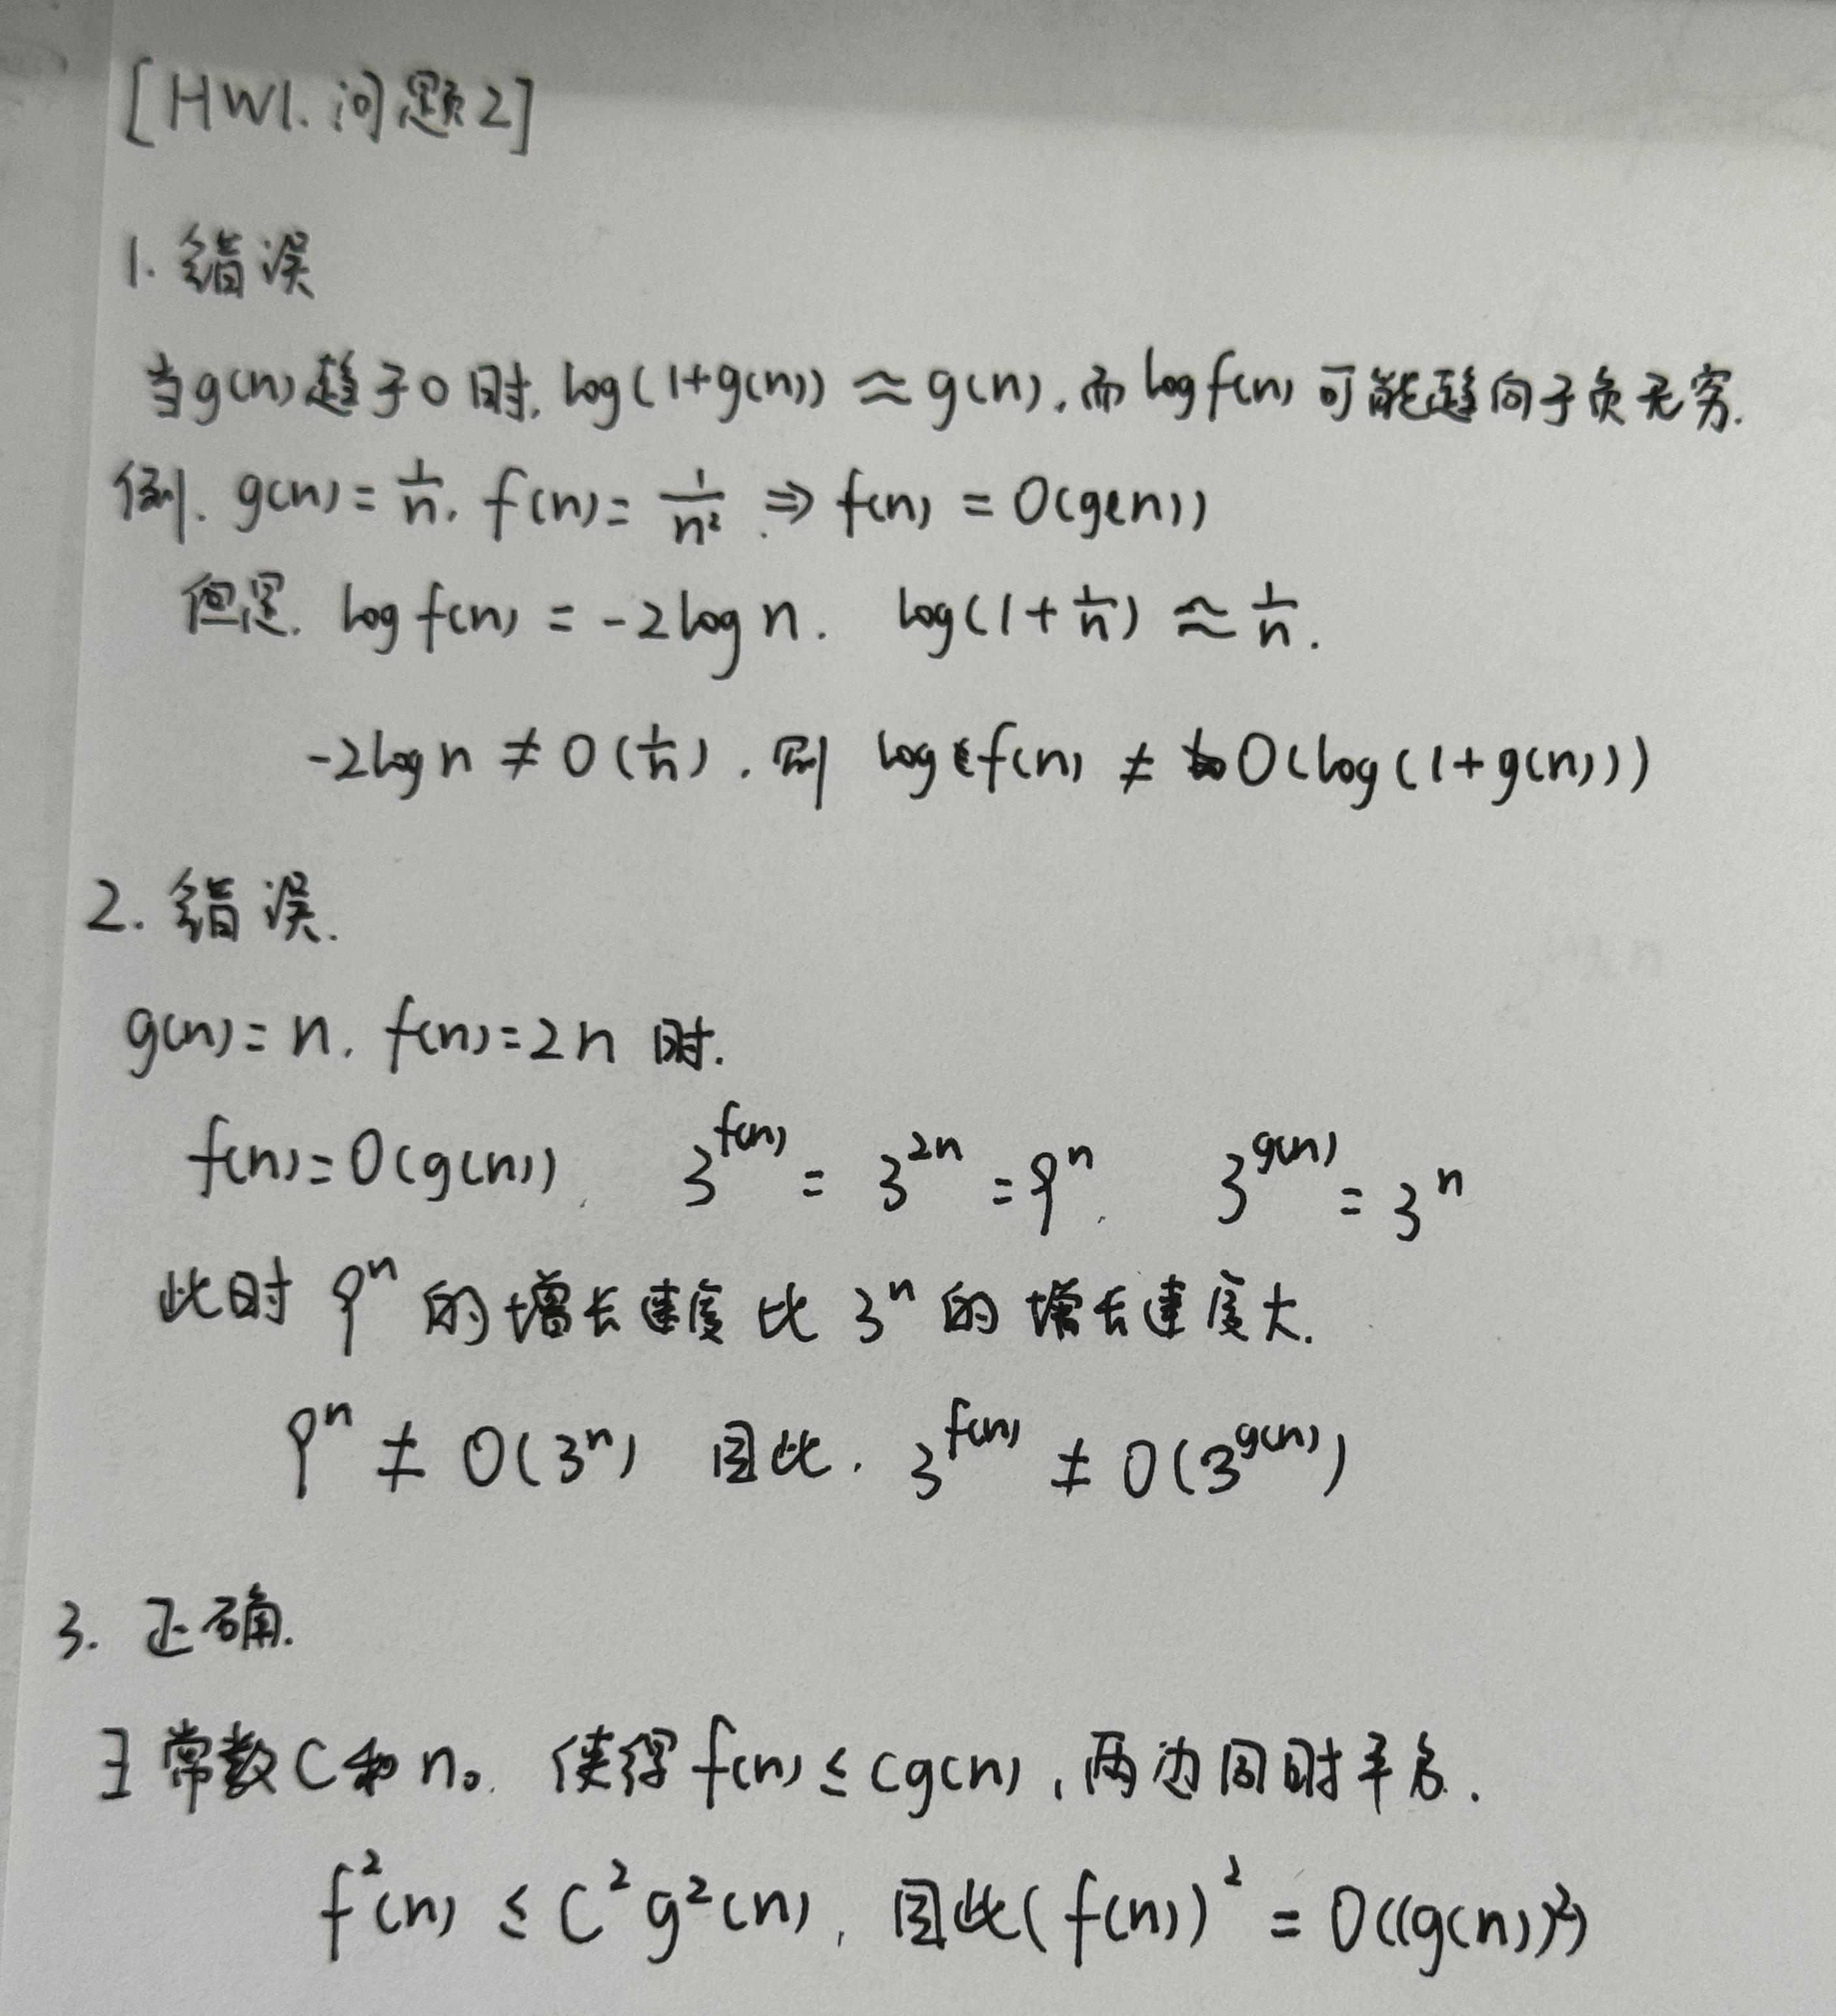 [HW1. 问题2]
1. 错误
当g(n)趋于0时, log(1+g(n)) ≈ g(n), 而 log f(n) 可能趋向于负无穷.
例. g(n) = 1/n, f(n) = 1/n² . ⇒ f(n) = O(g(n))
但是. log f(n) = -2log n. log(1+1/n) ≈ 1/n.
-2log n ≠ O(1/n). 则 log f(n) ≠ O(log(1+g(n)))
2. 错误.
g(n) = n. f(n) = 2n 时.
f(n) = O(g(n)). 3^f(n) = 3^2n = 9^n. 3^g(n) = 3^n
此时 9^n 的增长速度比 3^n 的增长速度大.
9^n ≠ O(3^n) 因此. 3^f(n) ≠ O(3^g(n))
3. 正确.
∃ 常数 C 和 n₀. 使得 f(n) ≤ cg(n), 两边同时平方.
f²(n) ≤ C²g²(n), 因此 (f(n))² = O((g(n))²)